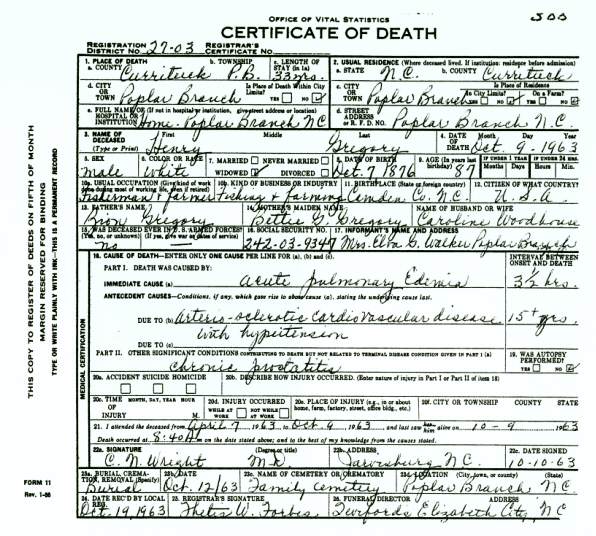 500
OFFICE OF VITAL STATISTICS
CERTIFICATE OF DEATH
REGISTRATION DISTRICT NO. 27-03 REGISTRAR'S CERTIFICATE NO.
1. PLACE OF DEATH b. TOWNSHIP c. LENGTH OF STAY (in 1a) 2. USUAL RESIDENCE (Where deceased lived. If institution: residence before admission)
a. COUNTY Currituck P.B. 33 a. STATE N.C. b. COUNTY Currituck
d. CITY OR TOWN Poplar Branch Is Place of Death Within City Limits? YES NO c. CITY OR TOWN Poplar Branch Is Place of Residence In City Limits? YES NO On a Farm? YES NO
e. FULL NAME OF (If not in hospital or institution, give street address or location) HOSPITAL OR INSTITUTION Home - Poplar Branch NC d. STREET ADDRESS OR R. F. D. NO. Poplar Branch N.C.
3. NAME OF DECEASED (Type or Print) First Middle Last 4. DATE OF DEATH Month Day Year
Henry Gregory Oct. 9. 1963
5. SEX 6. COLOR OR RACE 7. MARRIED NEVER MARRIED WIDOWED DIVORCED 8. DATE OF BIRTH 9. AGE (In years last birthday) IF UNDER 1 YEAR Months Days IF UNDER 24 HRS. Hours Min.
male White Oct. 7 1876 87
10a. USUAL OCCUPATION (Give kind of work done during most of working life, even if retired) 10b. KIND OF BUSINESS OR INDUSTRY 11. BIRTHPLACE (State or foreign country) 12. CITIZEN OF WHAT COUNTRY?
Fisherman & Farmer Fishing & Farming Camden Co. N.C. U.S.A
13. FATHER'S NAME 14. MOTHER'S MAIDEN NAME NAME OF HUSBAND OR WIFE
Gregory Bettie G. Gregory Caroline Woodhouse
15. WAS DECEASED EVER IN U. S. ARMED FORCES? (Yes, no, or unknown) (If yes, give war or dates of service) 16. SOCIAL SECURITY NO. 17. INFORMANT'S NAME AND ADDRESS
no 242-03-9347 Mrs. Elva G. Walker Poplar Branch
18. CAUSE OF DEATH—ENTER ONLY ONE CAUSE PER LINE FOR (a), (b) and (c). INTERVAL BETWEEN ONSET AND DEATH
PART I. DEATH WAS CAUSED BY:
IMMEDIATE CAUSE (a) Acute pulmonary Edemia 3½ hrs.
ANTECEDENT CAUSES—Conditions, if any, which gave rise to above cause (a), stating the underlying cause last.
DUE TO (b) Arterio-sclerotic cardio Vascular disease 15+ yrs.
with hypertension
DUE TO (c)
PART II. OTHER SIGNIFICANT CONDITIONS CONTRIBUTING TO DEATH BUT NOT RELATED TO TERMINAL DISEASE CONDITION GIVEN IN PART I (a) 19. WAS AUTOPSY PERFORMED?
chronic prostatitis YES NO
20a. ACCIDENT SUICIDE HOMICIDE 20b. DESCRIBE HOW INJURY OCCURRED. (Enter nature of injury in Part I or Part II of item 18)
20c. TIME OF INJURY MONTH, DAY, YEAR HOUR M. 20d. INJURY OCCURRED WHILE AT WORK NOT WHILE AT WORK 20e. PLACE OF INJURY (e.g., in or about home, farm, factory, street, office bldg., etc.) 20f. CITY OR TOWNSHIP COUNTY STATE
21. I attended the deceased from April 7 1963 to Oct. 9 1963 and last saw him alive on 10-9 1963
Death occurred at 8:40A m. on the date stated above; and to the best of my knowledge from the causes stated.
22a. SIGNATURE (Degree or title) 22b. ADDRESS 22c. DATE SIGNED
C. N. Wright M.D. Jarvisburg N.C. 10-10-63
23a. BURIAL, CREMATION, REMOVAL (Specify) 23b. DATE 23c. NAME OF CEMETERY OR CREMATORY 23d. LOCATION (City, town, or county) (State)
Burial Oct. 12/63 Family Cemetery Poplar Branch N.C.
24. DATE REC'D BY LOCAL REG. 25. REGISTRAR'S SIGNATURE 26. FUNERAL DIRECTOR ADDRESS
Oct 19, 1963 Thetis W. Forbes Twifords Elizabeth City, N.C
THIS COPY TO REGISTER OF DEEDS ON FIFTH OF MONTH
MARGIN RESERVED FOR BINDING
TYPE OR WRITE PLAINLY WITH INK—THIS IS A PERMANENT RECORD
MEDICAL CERTIFICATION
FORM 11